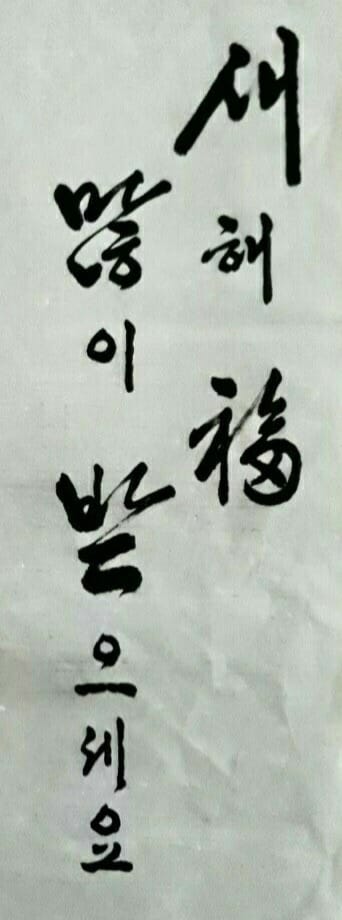 새해福
많이받으세요